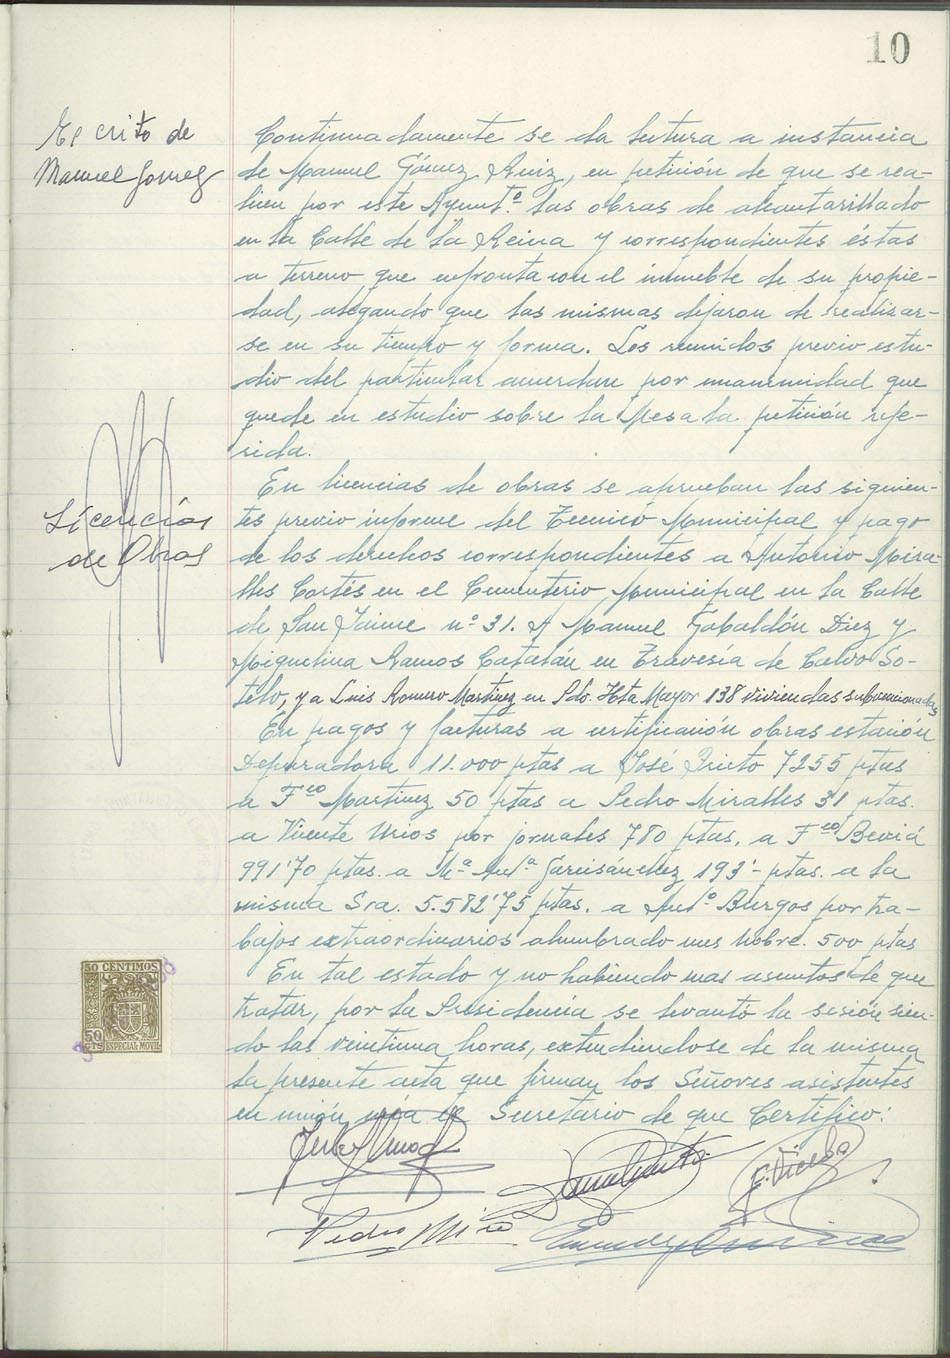 10
Escrito de
Manuel Gomez
Continuadamente se da lectura a instancia
de Manuel Gómez Ruiz, en petición de que se rea-
licen por este Ayuntº. las obras de alcantarillado
en la Calle de la Reina y correspondientes éstas
a terreno que enfronta con el inmueble de su propie-
dad, alegando que las mismas dejaron de realizar-
se en su tiempo y forma. Los reunidos previo estu-
dio del particular acuerdan por unanimidad que
quede en estudio sobre la Mesa la petición refe-
rida.
Licencias
de Obras
En licencias de obras se aprueban las siguien-
tes previo informe del Tecnicó Municipal y pago
de los derechos correspondientes a Antonio Mira-
lles Cortés en el Cementerio Municipal en la Calle
de San Jaime nº 31. A Manuel Gabaldón Diez y
Miguelina Ramos Catalán en Travesía de Calvo So-
telo, y a Luis Romero Martinez en Pdo. Hta Mayor 138 viviendas subvencionadas
En pagos y facturas a certificación obras estación
Depuradora 11.000 ptas a José Prieto 7255 ptas
a Fco Martinez 50 ptas a Pedro Miralles 31 ptas.
a Vicente Urios por jornales 780 ptas. a Fco Beviá
991'70 ptas. a Mª Antª Garcisánchez 193'- ptas. a la
misma Sra. 5.582'75 ptas. a Antº Burgos por tra-
bajos extraordinarios alumbrado mes Nobre. 500 ptas
En tal estado y no habiendo mas asuntos de que
tratar, por la Presidencia se levantó la sesión sien-
do las veintiuna horas, extendiendose de la misma
la presente acta que firman los Señores asistentes
en unión mía el Secretario de que Certifico:
50 CENTIMOS
50
CTS
ESPECIAL MOVIL
Pedro Miro